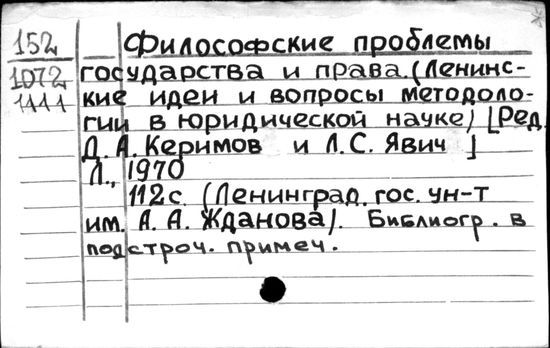 152 Философские проблемы
1072 государства и права (Ленинс-
1111 кие идеи и вопросы методоло-
гии в юридической науке) [Ред.
Д. А. Керимов и Л. С. Явич]
Л., 1970
112 с. (Ленинград. гос. ун-т
им. А. А. Жданова). Библиогр. в
подстроч. примеч.